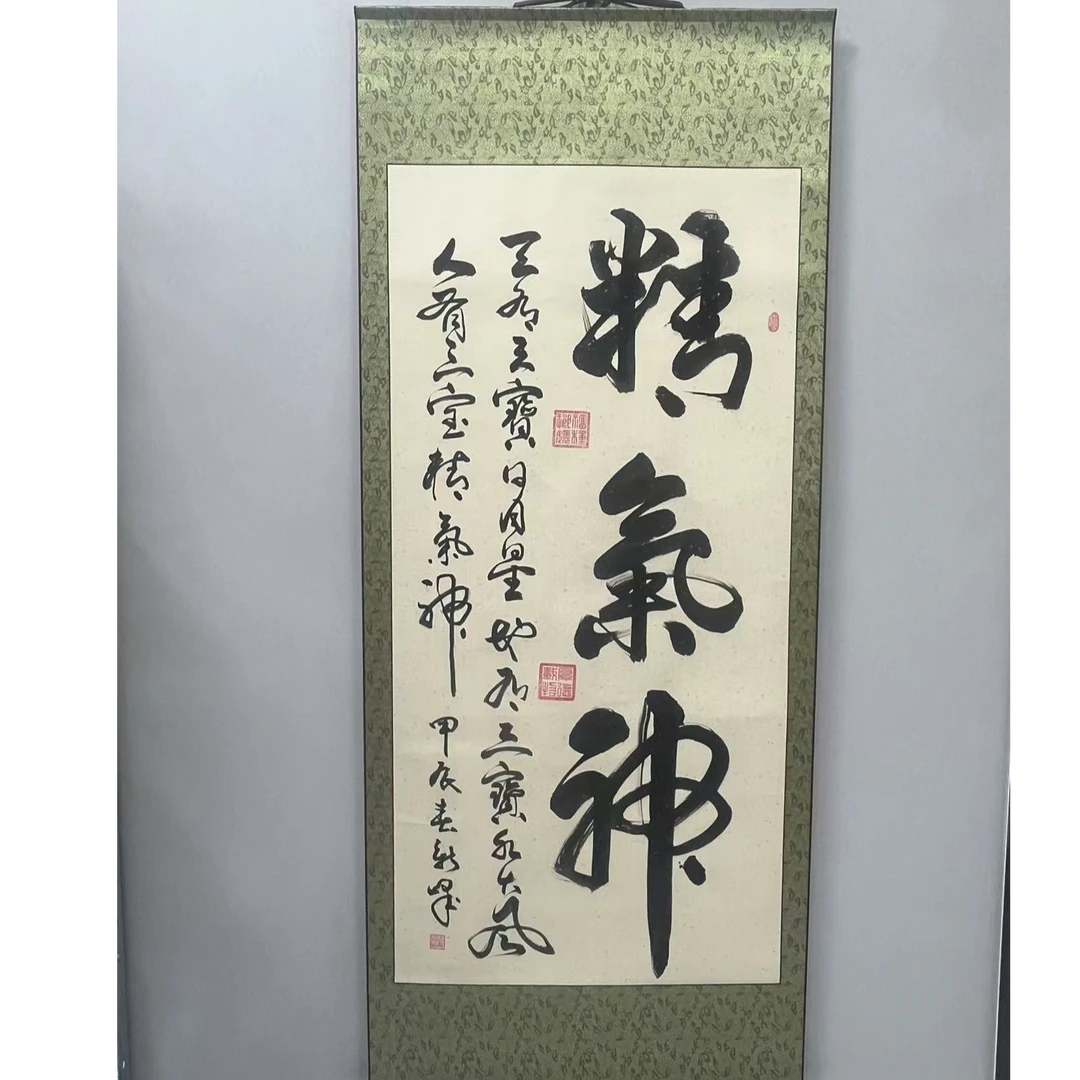 精氣神
天有三寶日月星地有三寶水火風
人有三宝精氣神
甲辰春新峰